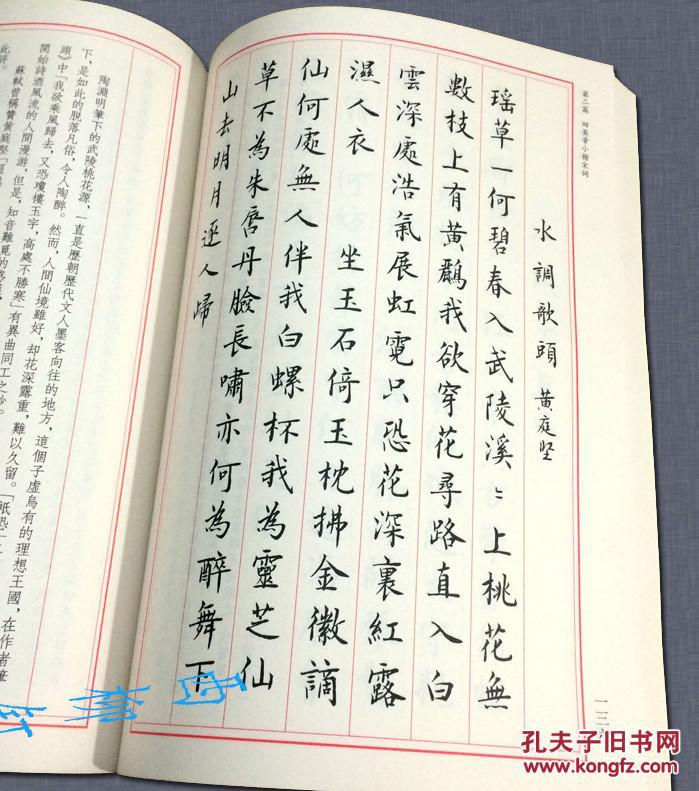 第二篇 田英章小楷宋词
水調歌頭 黄庭坚
瑶草一何碧春入武陵溪〻上桃花無
數枝上有黄鸝我欲穿花尋路直入白
雲深處浩氣展虹霓只恐花深裏紅露
濕人衣　坐玉石倚玉枕拂金徽謫
仙何處無人伴我白螺杯我為靈芝仙
草不為朱唇丹臉長嘯亦何為醉舞下
山去明月逐人歸
陶淵明筆下的武陵桃花源，一直是歷朝歷代文人墨客向往的地方，這個子虛烏有的理想王國，在作者筆
下，是如此的脱落凡俗，令人陶醉。然而，人間仙境雖好，却花深露重，難以久留。「祇恐」
頭》中「我欲乘風歸去，又恐瓊樓玉宇，高處不勝寒」有異曲同工之妙。
開始詩酒風流的人間漫游，但是，知音難覓的
蘇軾曾稱贊黄庭堅「
此評。
孔夫子旧书网
www.kongfz.com